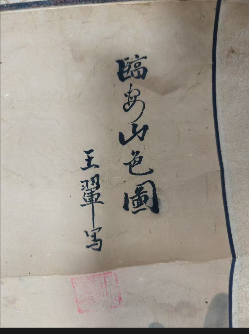 臨安山色圖
王翬写